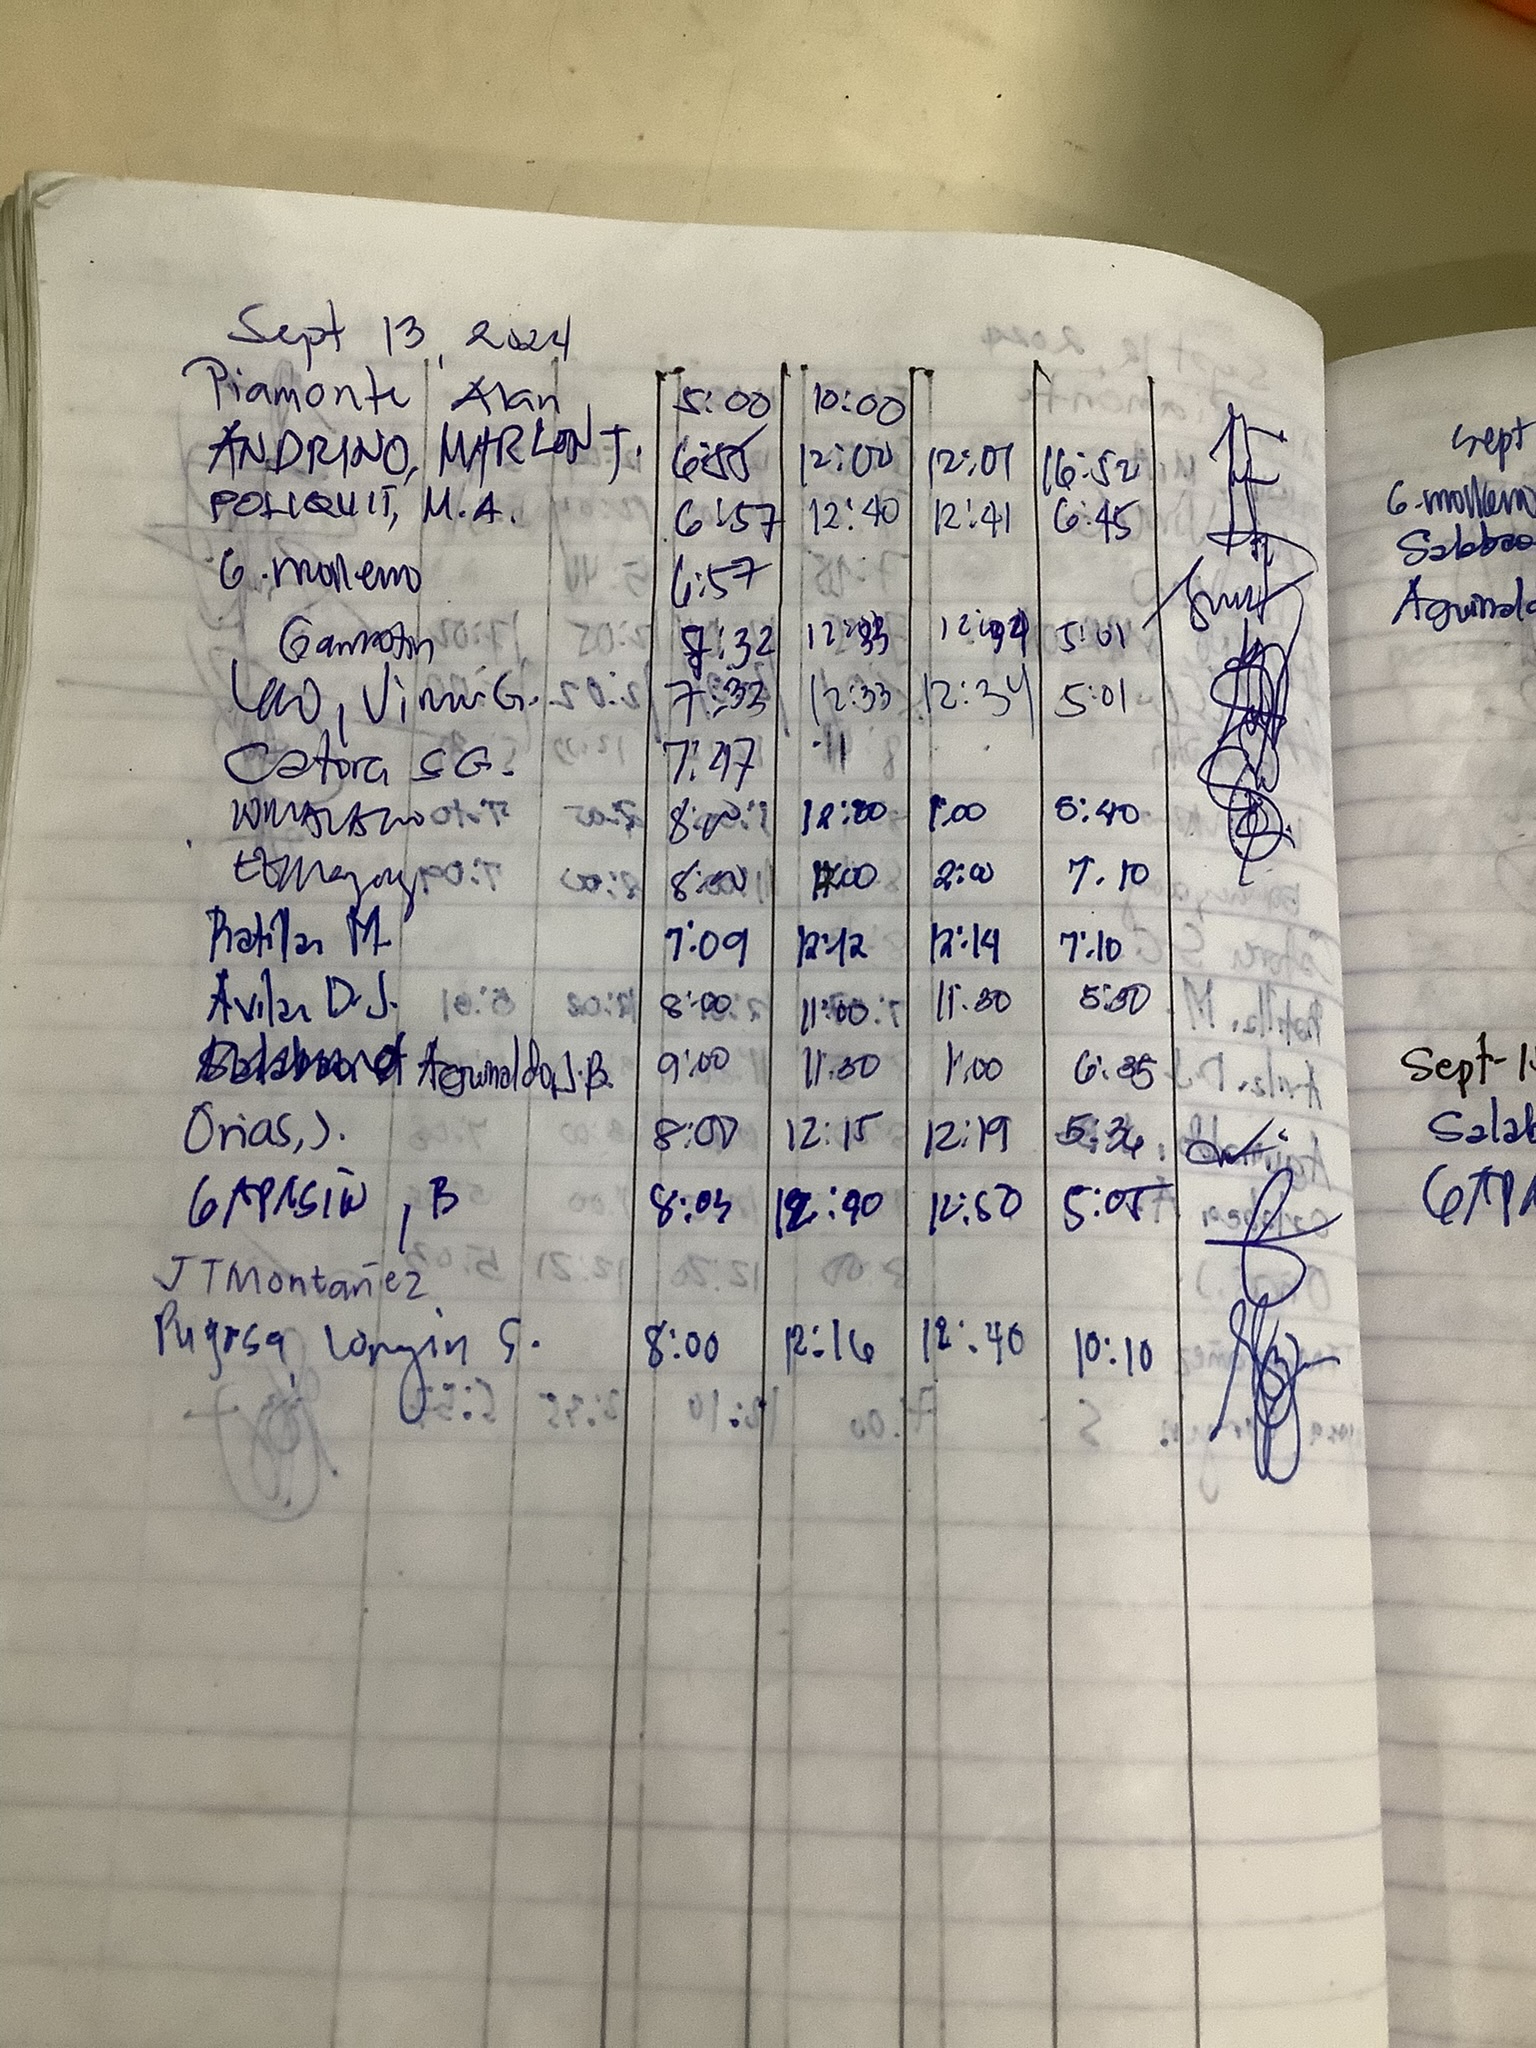 Sept 13, 2024
Piamonte Alan 5:00 10:00
ANDRINO, MARLON J. 6:55 12:00 12:01 16:52
POLIQUIT, M.A. 6:57 12:40 12:41 6:45
G. mollemo 6:57
7:32 12:33 5:01
Vinni G. 7:33 12:33 12:34 5:01
Catora S G. 7:47
8:00 1:00 5:40
8:00 2:00 7:10
Ratilla M. 7:09 12:12 12:14 7:10
Avila D.J. 8:00 11:00 11:30 5:30
Aguinaldo, J.B. 9:00 11:30 1:00 6:35
Orias, J. 8:00 12:15 12:19 5:36
GAPASIN, B 8:03 12:50 5:05
JTMontañez
Pugosa, Longin S. 8:00 12:16 12:40 10:10
Sept
G. mollemo
Salabao
Aguinald
Sept-1
Salab
GAPA